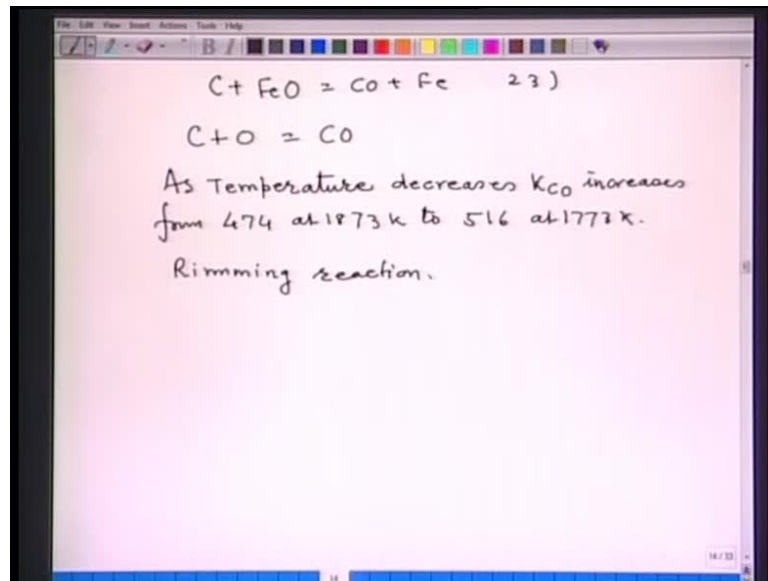 File Edit View Insert Actions Tools Help
C + FeO = Co + Fe 23)
C + O = CO
As Temperature decreases KCO increases
from 474 at 1873 K to 516 at 1773 K.
Rimming reaction.
14/33